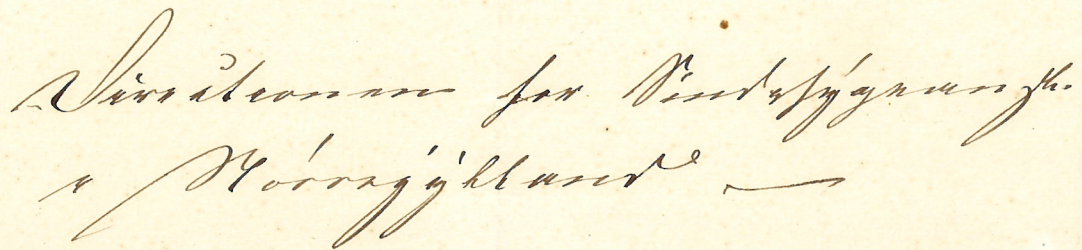 Directionen for Sindssygeanst.
i Nörrejylland